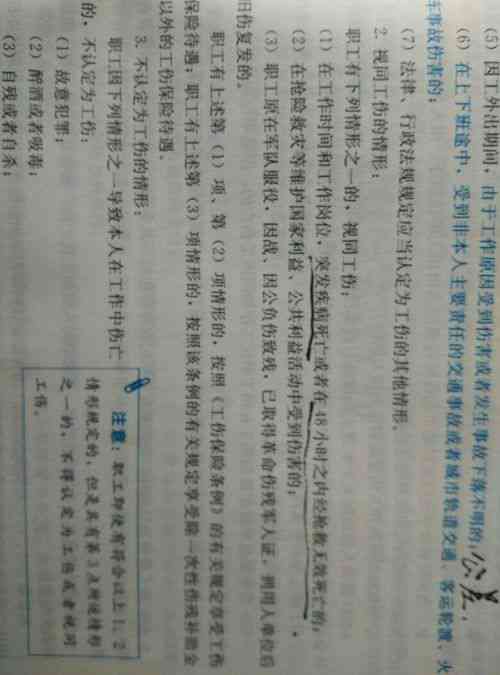 (5) 因工外出期间，由于工作原因受到伤害或者发生事故下落不明的；公差
(6) 在上下班途中，受到非本人主要责任的交通事故或者城市轨道交通、客运轮渡、火
车事故伤害的；
(7) 法律、行政法规规定应当认定为工伤的其他情形。
2. 视同工伤的情形：
职工有下列情形之一的，视同工伤：
(1) 在工作时间和工作岗位，突发疾病死亡或者在48小时之内经抢救无效死亡的；
(2) 在抢险救灾等维护国家利益、公共利益活动中受到伤害的；
(3) 职工原在军队服役，因战、因公负伤致残，已取得革命伤残军人证，到用人单位后
旧伤复发的。
职工有上述第（1）项、第（2）项情形的，按照《工伤保险条例》的有关规定享受工伤
保险待遇；职工有上述第（3）项情形的，按照该条例的有关规定享受除一次性伤残补助金
以外的工伤保险待遇。
3. 不认定为工伤的情形：
职工因下列情形之一导致本人在工作中伤亡
的，不认定为工伤：
(1) 故意犯罪；
(2) 醉酒或者吸毒；
(3) 自残或者自杀；
注意：职工即使有符合以上1、2
情形规定的，但是具有第3点所述情形
之一的，不得认定为工伤或者视同
工伤。